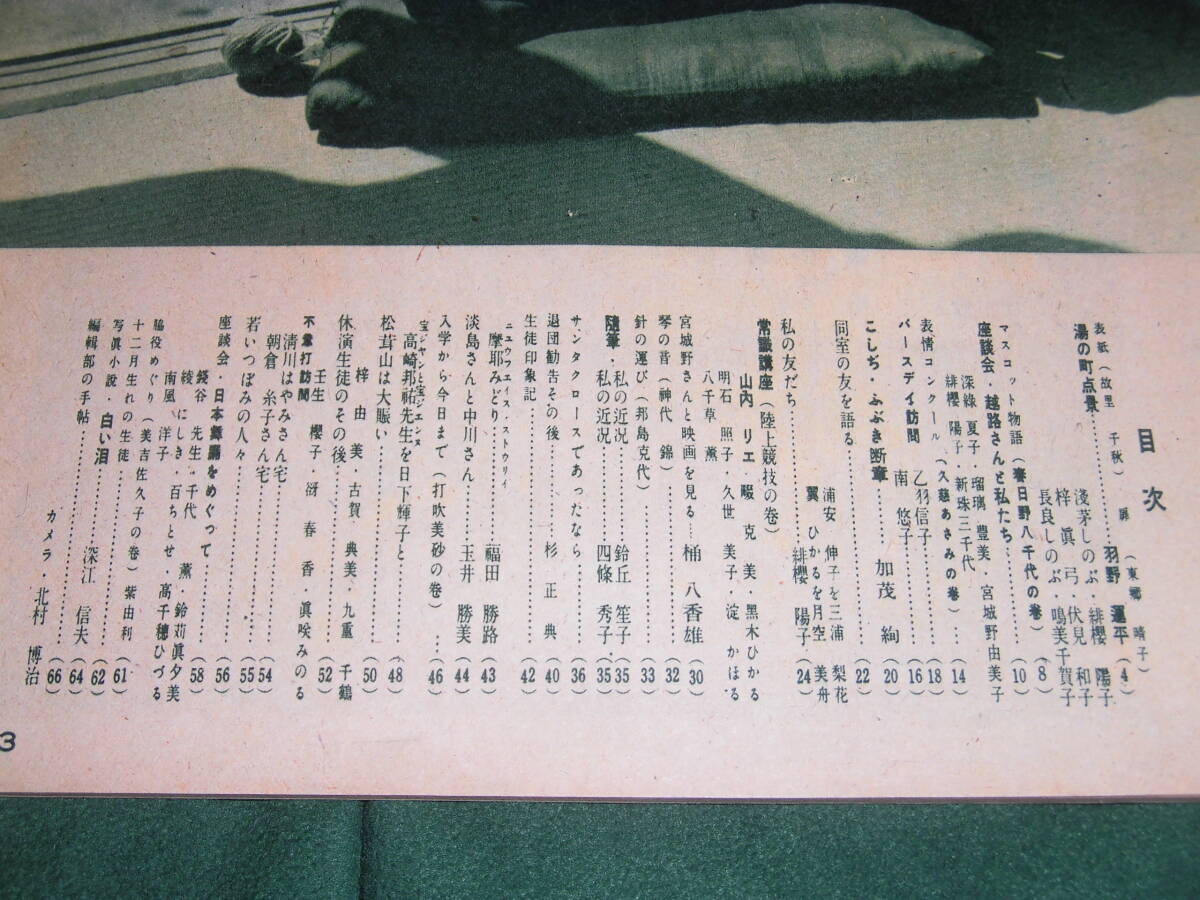 目次
表紙(故里 千秋) 扉 (東郷 晴子)
湯の町点景………羽野 運平(4)
淺茅しのぶ・緋櫻 陽子
梓 眞 弓・伏見 和子
長良しのぶ・鳴美千賀子
座談会・越路さんと私たち………(8)
マスコット物語(春日野八千代の巻)………(10)
深緑 夏子・瑠璃 豊美・宮城野由美子
緋櫻 陽子・新珠三千代
表情コンクール(久慈あさみの巻)…(14)
バースデイ訪問 乙羽信子………(18)
南 悠子………(16)
こしぢ・ふぶき断章 加茂 絢(20)
同室の友を語る………(22)
浦安 伸子・三浦 梨花
翼 ひかる・月空 美舟
私の友だち………緋櫻 陽子(24)
常識講座(陸上競技の巻)
山内 リエ・畷 克 美・黒木ひかる
明石 照子・久世 美子・淀 かほる
八千草 薫
宮城野さんと映画を見る……桶 八香雄(30)
琴の音(神代 錦)………(32)
針の運び(邦島克代)………(33)
隨筆・私の近況………鈴丘 笙子(35)
私の近況………四條 秀子(35)
サンタクロースであったなら………(36)
退団勧告その後………杉 正 典(40)
生徒印象記………(42)
ニュウフェイス・ストウリィ
摩耶みどり………福田 勝路(43)
淡島さんと中川さん………玉井 勝美(44)
入学から今日まで(打吹美砂の巻)………(46)
宝ジャンと宝ジェンヌ
高崎邦祐先生を日下輝子と………(48)
松茸山は大賑い………(50)
梓 由 美・古賀 典美・九重 千鶴
休演生徒のその後………(52)
壬生 櫻子・冴 春 香・眞咲みのる
不意打訪問
清川はやみさん宅………(54)
朝倉 糸子さん宅………(55)
若いつぼみの人々………(56)
座談会・日本舞踊をめぐって………(58)
綾 にしき・百ちとせ・高千穂ひづる
南風 洋子
脇役めぐり(美吉佐久子の巻)紫由利(61)
十二月生れの生徒………(62)
写眞小説・白い泪………深江 信夫(64)
編輯部の手帖………(66)
カメラ・北村 博治
3